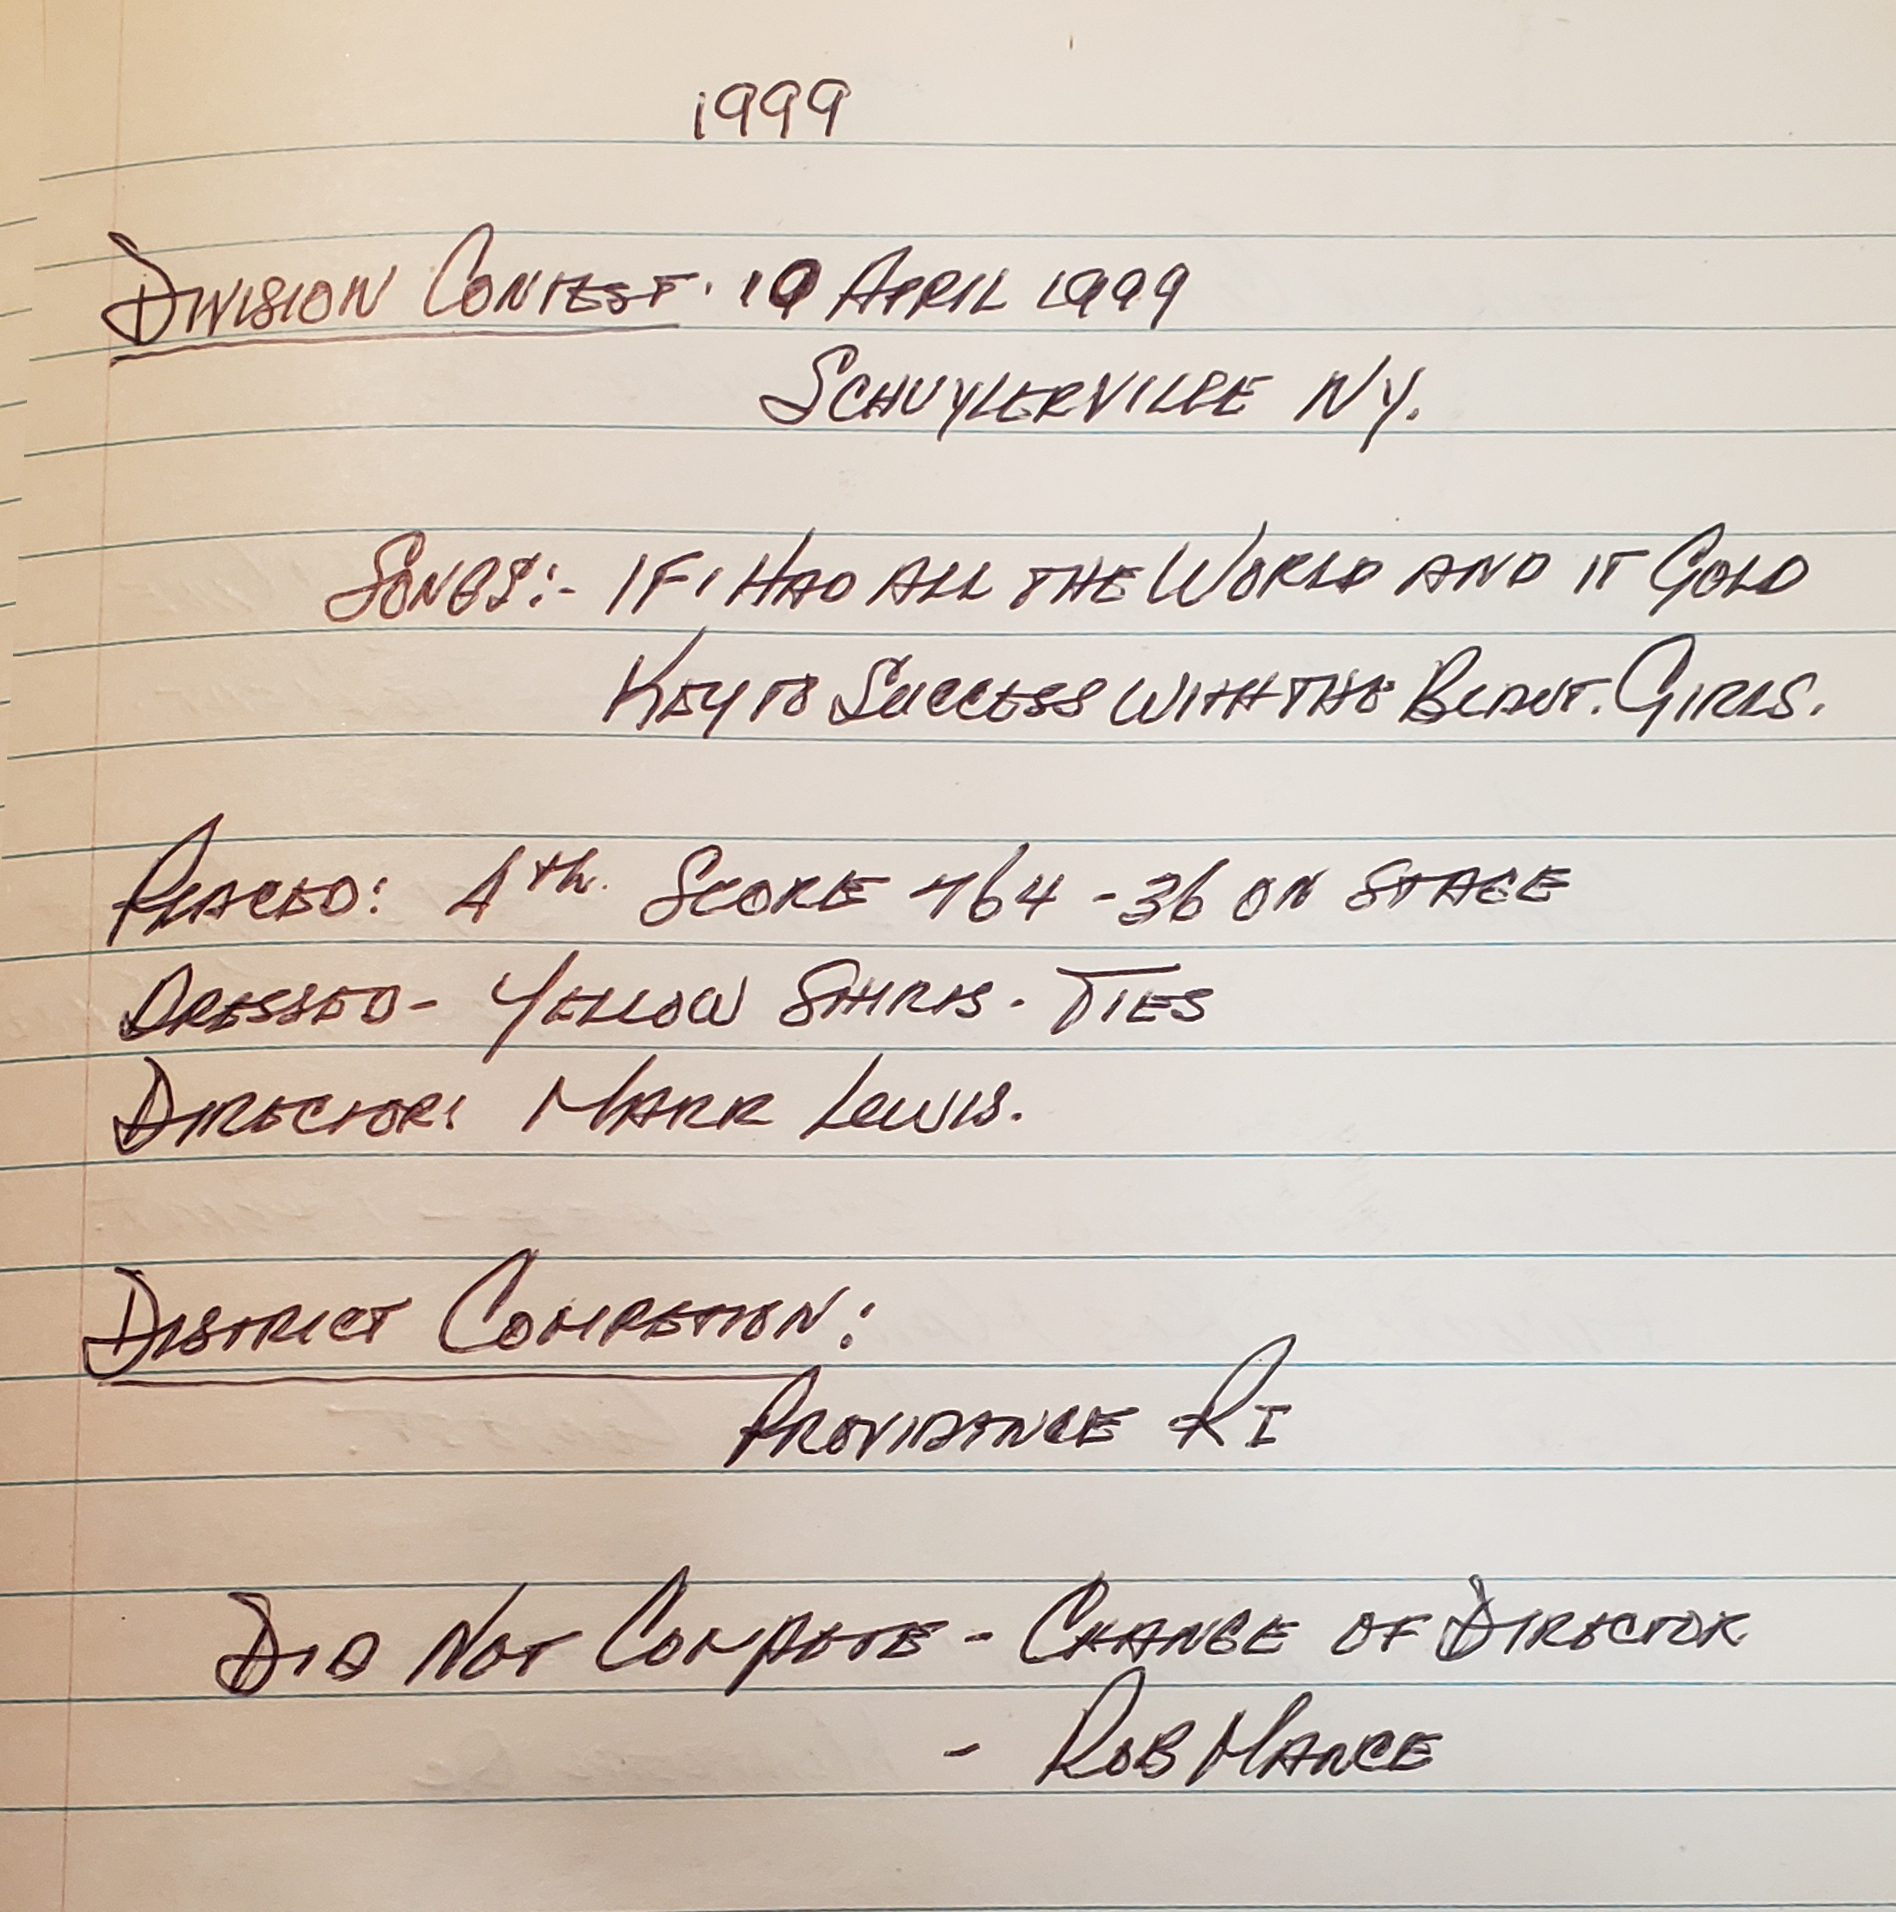 1999
DIVISION CONTEST. 10 APRIL 1999
SCHUYLERVILLE NY.
SONGS:- IF I HAD ALL THE WORLD AND IT GOLD
KEY TO SUCCESS WITH THE BEAUT. GIRLS.
PLACED: 4th. SCORE 764 - 36 ON STAGE
DRESSED - YELLOW SHIRTS - TIES
DIRECTOR: MARK LEWIS.
DISTRICT COMPETION:
PROVIDANCE RI
DID NOT COMPETE - CHANGE OF DIRECTOR
- ROB MANCE